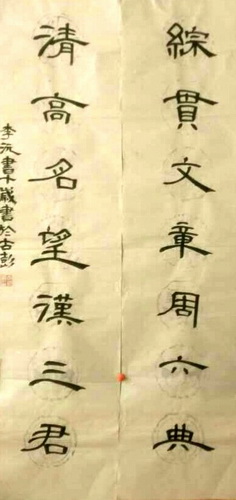 綜貫文章周六典
清高名望漢三君
李沅書十歲書於古彭